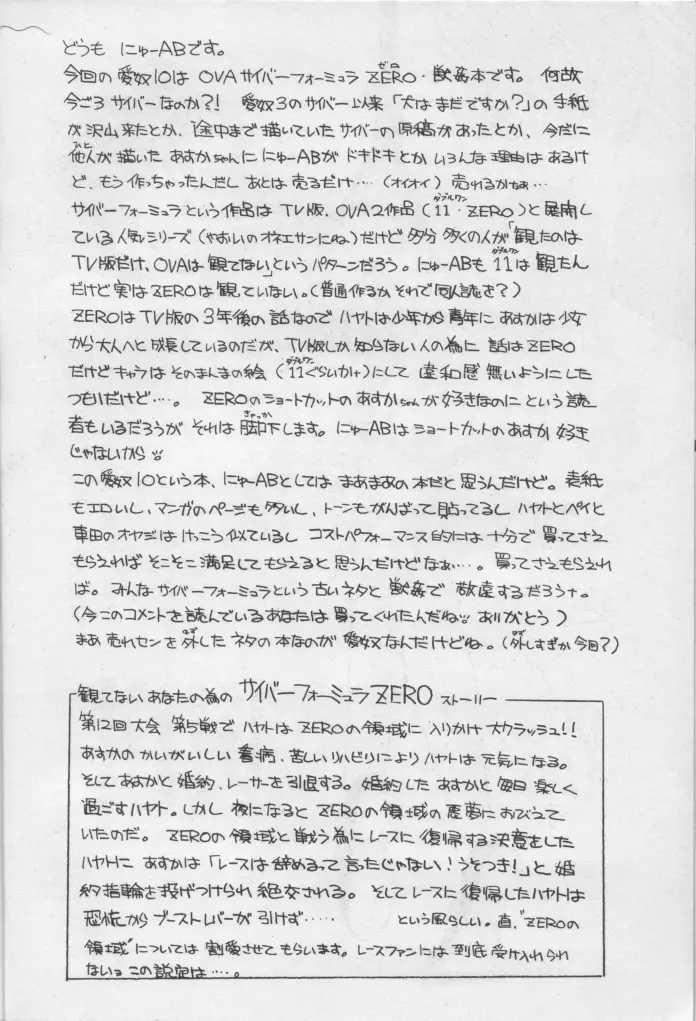 どうも にゅーABです。
今回の愛奴10は OVAサイバーフォーミュラ ZERO・獣姦本です。 何故
ゼロ
今ごろサイバーなのか?! 愛奴3のサイバー以来「犬はまだですか?」の手紙
が沢山来たとか、途中まで描いていたサイバーの原稿があったとか、今だに
他人が描いた あすかちゃんに にゅーABが ドキドキとか いろんな理由はあるけ
ひと
ど、もう作っちゃったんだし あとは売るだけ…(オイオイ) 売れるかなぁ…
サイバーフォーミュラという作品は TV版、OVA2作品(11・ZERO)と展開し
ダブルワン
ている人気シリーズ(やおいのオネエサンにね)だけど多分 多くの人が「観たのは
TV版だけ、OVAは観てない」というパターンだろう。にゅーABも 11は観たん
ダブルワン
だけど実はZEROは観ていない。(普通作るか それで同人誌を?)
ZEROはTV版の3年後の話なので ハヤトは少年から青年に あすかは少女
から大人へと成長しているのだが、TV版しか知らない人の為に 話はZERO
だけどキャラはそのまんまの絵(11ぐらいか)にして 違和感無いようにした
ダブルワン
つもりだけど…。 ZEROのショートカットのあすかちゃんが好きなのに という読
者もいるだろうが それは却下します。にゅーABはショートカットのあすか 好き
きゃっか
じゃないから
この愛奴10という本、にゅーABとしては まあまあの本だと思うんだけど。表紙
もエロいし、マンガのページも多いし、トーンもがんばって貼ってるし ハヤトとペイと
車田のオヤジは けっこう似ているし コストパフォーマンス的には十分で 買ってさえ
もらえれば そこそこ満足してもらえると思うんだけどなぁ…。買ってさえもらえれ
ば。みんな サイバーフォーミュラという古いネタと 獣姦で 敬遠するだろナ。
(今このコメントを読んでいるあなたは買ってくれたんだね ありがとう)
まあ 売れセンを外した ネタの本なのが 愛奴なんだけどね。(外しすぎか今回?)
はず
はず
観てないあなたの為の サイバーフォーミュラ ZERO ストーリー
第12回大会 第5戦で ハヤトは ZEROの領域に 入りかけ 大クラッシュ!!
あすかのかいがいしい 看病、苦しいリハビリにより ハヤトは 元気になる。
そして あすかと 婚約、レーサーを引退する。婚約した あすかと 毎日 楽しく
過ごすハヤト。しかし 夜になると ZEROの領域の悪夢に おびえて
いたのだ。 ZEROの領域と戦う為にレースに 復帰する決意をした
ハヤトに あすかは「レースは辞めるって言ったじゃない!うそつき!」と 婚
約指輪を投げつけられ 絶交される。 そしてレースに復帰したハヤトは
恐怖から ブーストレバーが引けず…… という風らしい。直、"ZEROの
領域"については 割愛させてもらいます。レースファンには到底 受け入れられ
ない。この設定は…。